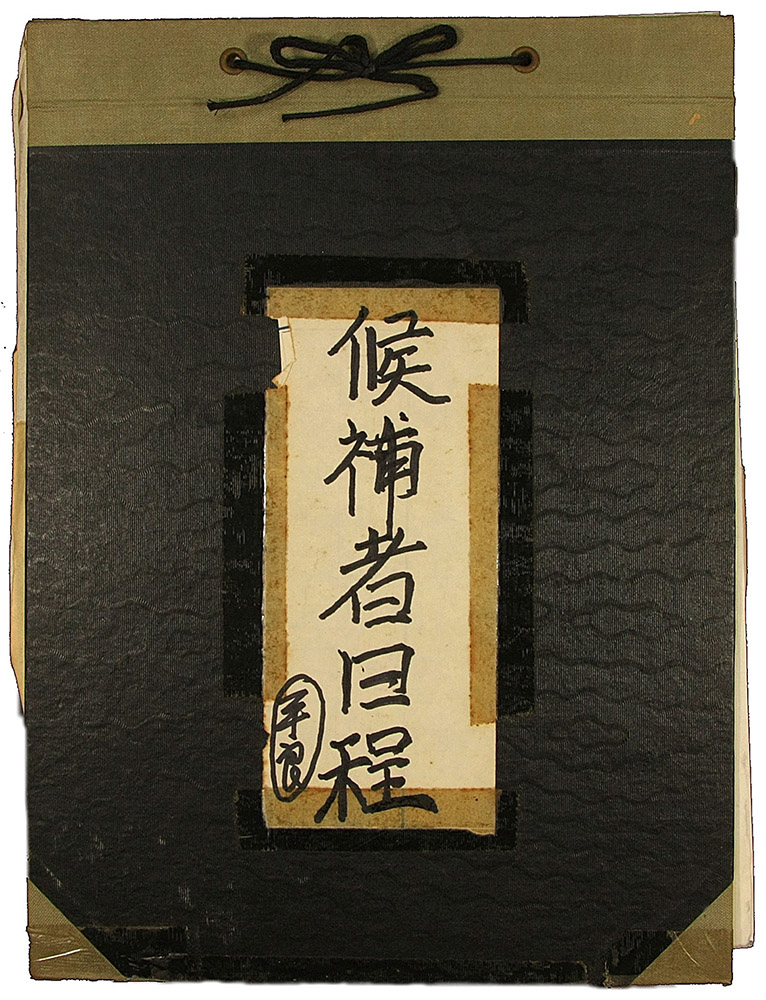 候補者日程
平良